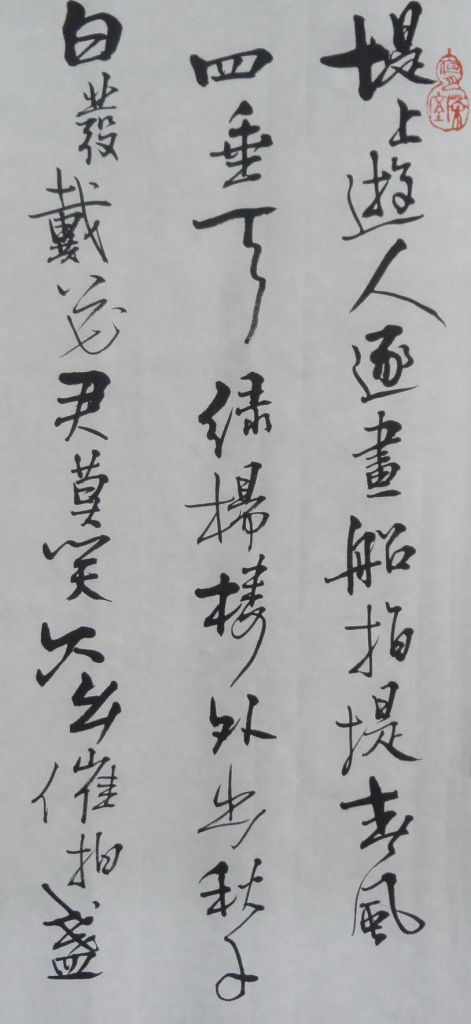 堤上遊人逐畫船拍堤春風
四垂天緑楊楼外出秋千
白發戴花君莫笑六幺催拍盞